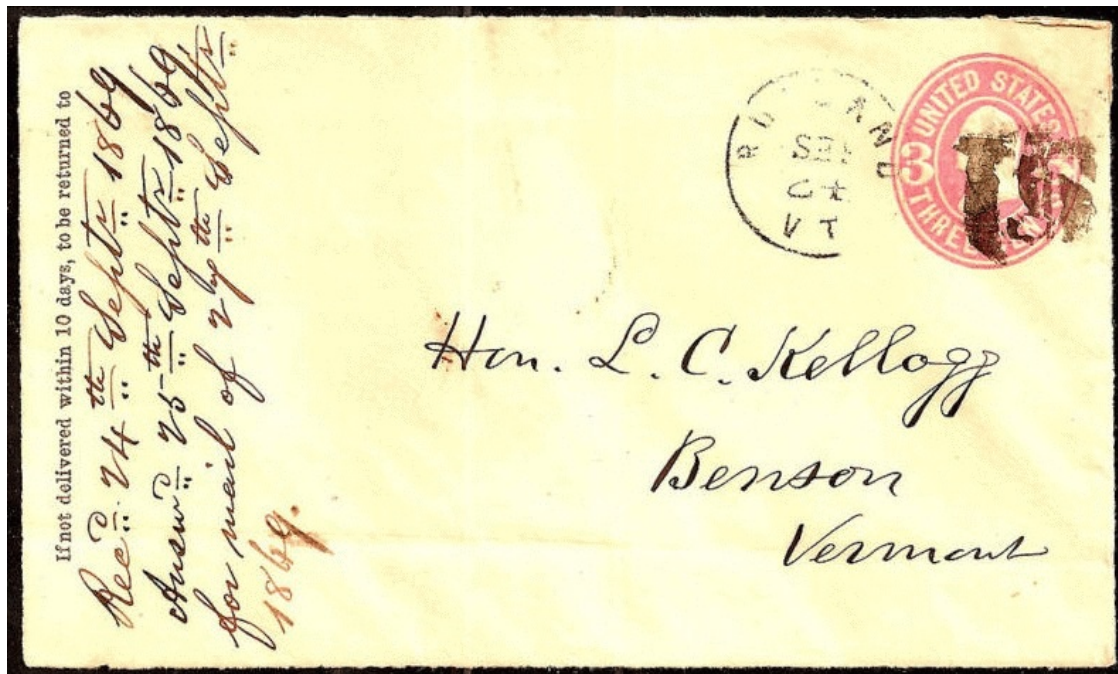 If not delivered within 10 days, to be returned to
Rec.d 24th Septr 1869
Answd 25th Septr 1869
for mail of 27th Septr
1869.
RUTLAND
SEP
24
VT
UNITED STATES
3
THREE CENTS
Hon. L. C. Kellogg
Benson
Vermont